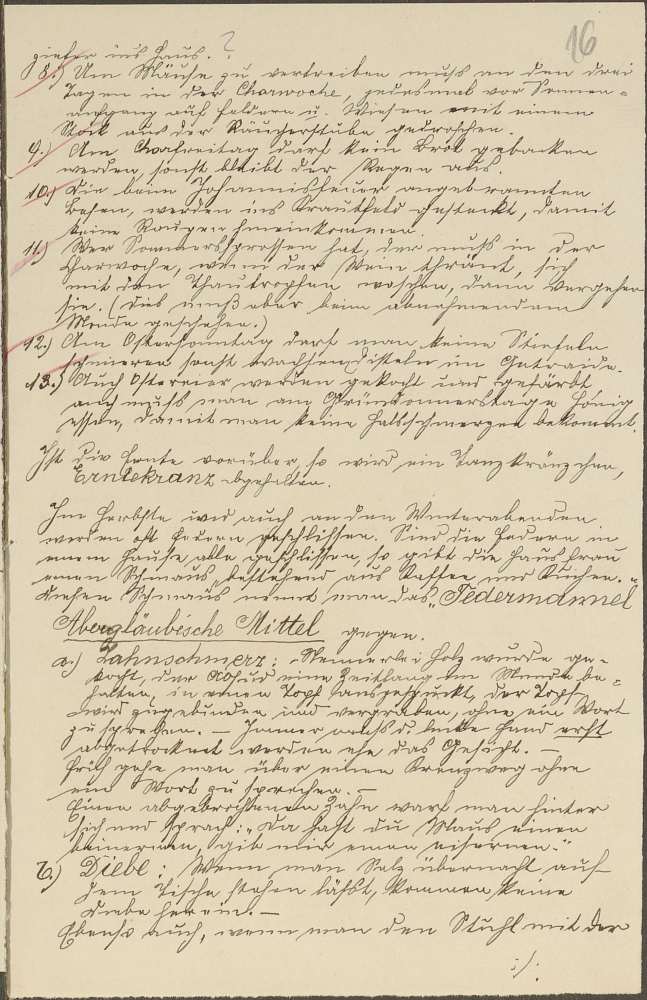 16
ziefer ins Haus. ?
8.) Um Mäuse zu vertreiben muß an den drei
Tagen in der Charwoche, jedesmal vor Sonnen-
aufgang auf Feldern u. Wiesen mit einem
Stock aus der Räucherstube gedroschen.
9.) Am Charfreitag darf kein Brot gebacken
werden, sonst bleibt der Regen aus.
10.) Die beim Johannisfeuer angebrannten
Besen, werden ins Krautfeld gesteckt, damit
keine Raupen hineinkommen.
11.) Wer Sommersprossen hat, der muß in der
Charwoche, wenn der Wein thränt, sich
mit den Thautropfen waschen, dann vergehen
sie. (Dies muß aber beim abnehmendem
Monde geschehen.)
12.) Am Ostersonntag darf man keine Stiefeln
schmieren sonst wachsen Disteln im Getraide.
13.) Auch Ostereier werden gekocht und gefärbt
auch muß man am Gründonnerstage Honig
essen, damit man keine Halsschmerzen bekommt.
Ist die Ernte vorüber, so wird ein Tanzkränzchen,
Erntekranz abgehalten.
Im Herbste und auch an den Winterabenden
werden oft Federn geschlissen. Sind die Federn in
einem Hause alle geschlissen, so gibt die Hausfrau
einen Schmaus, bestehend aus Kaffee und Kuchen.
Diesen Schmaus nennt man das „Federmannel"
Abergläubische Mittel gegen.
a.) Zahnschmerz: Holz wurde ge-
kocht, der eine Zeitlang im Munde be-
halten, in einen Topf ausgespuckt, der Topf
wird zugebunden und vergraben, ohne ein Wort
zu sprechen. — Immer muß d. linke Hand erst
abgetrocknet werden ehe das Gesicht. —
Früh gehe man über einen Kreuzweg ohne
ein Wort zu sprechen. —
Einen abgebrochenen Zahn warf man hinter
sich und sprach: „Da hast du Maus einen
beinernen, gib mir einen eisernen."
b.) Diebe: Wenn man Salz übernacht auf
dem Tische stehen läßt, kommen keine
Diebe herein. —
Ebenso auch, wenn man den Stuhl mit der